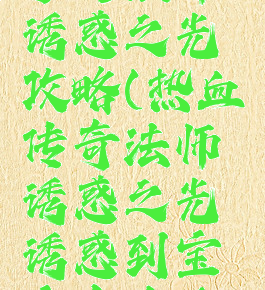 诱惑之光
攻略(热血
传奇法师
诱惑之光
诱惑到宝